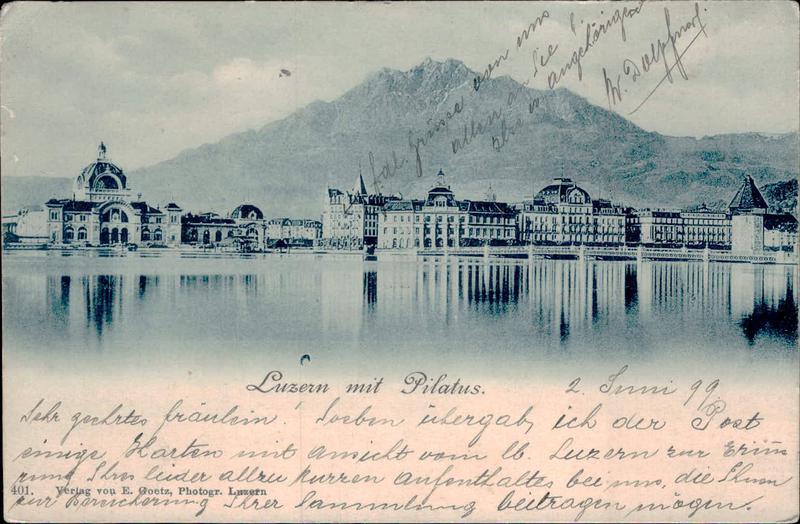 Luzern mit Pilatus.
2. Juni 99
Sehr geehrtes Fräulein! Soeben übergab, ich der Post
einige Karten mit ansicht vom lb. Luzern zur Erinne-
rung Ihres leider allzu kurzen aufenthaltes bei uns, die Ihnen
zur Bereicherung Ihrer Sammlung beitragen mögen.
401. Verlag von E. Goetz, Photogr. Luzern
Grüsse von uns
allen an Sie &
angehörigen
W. Dolf